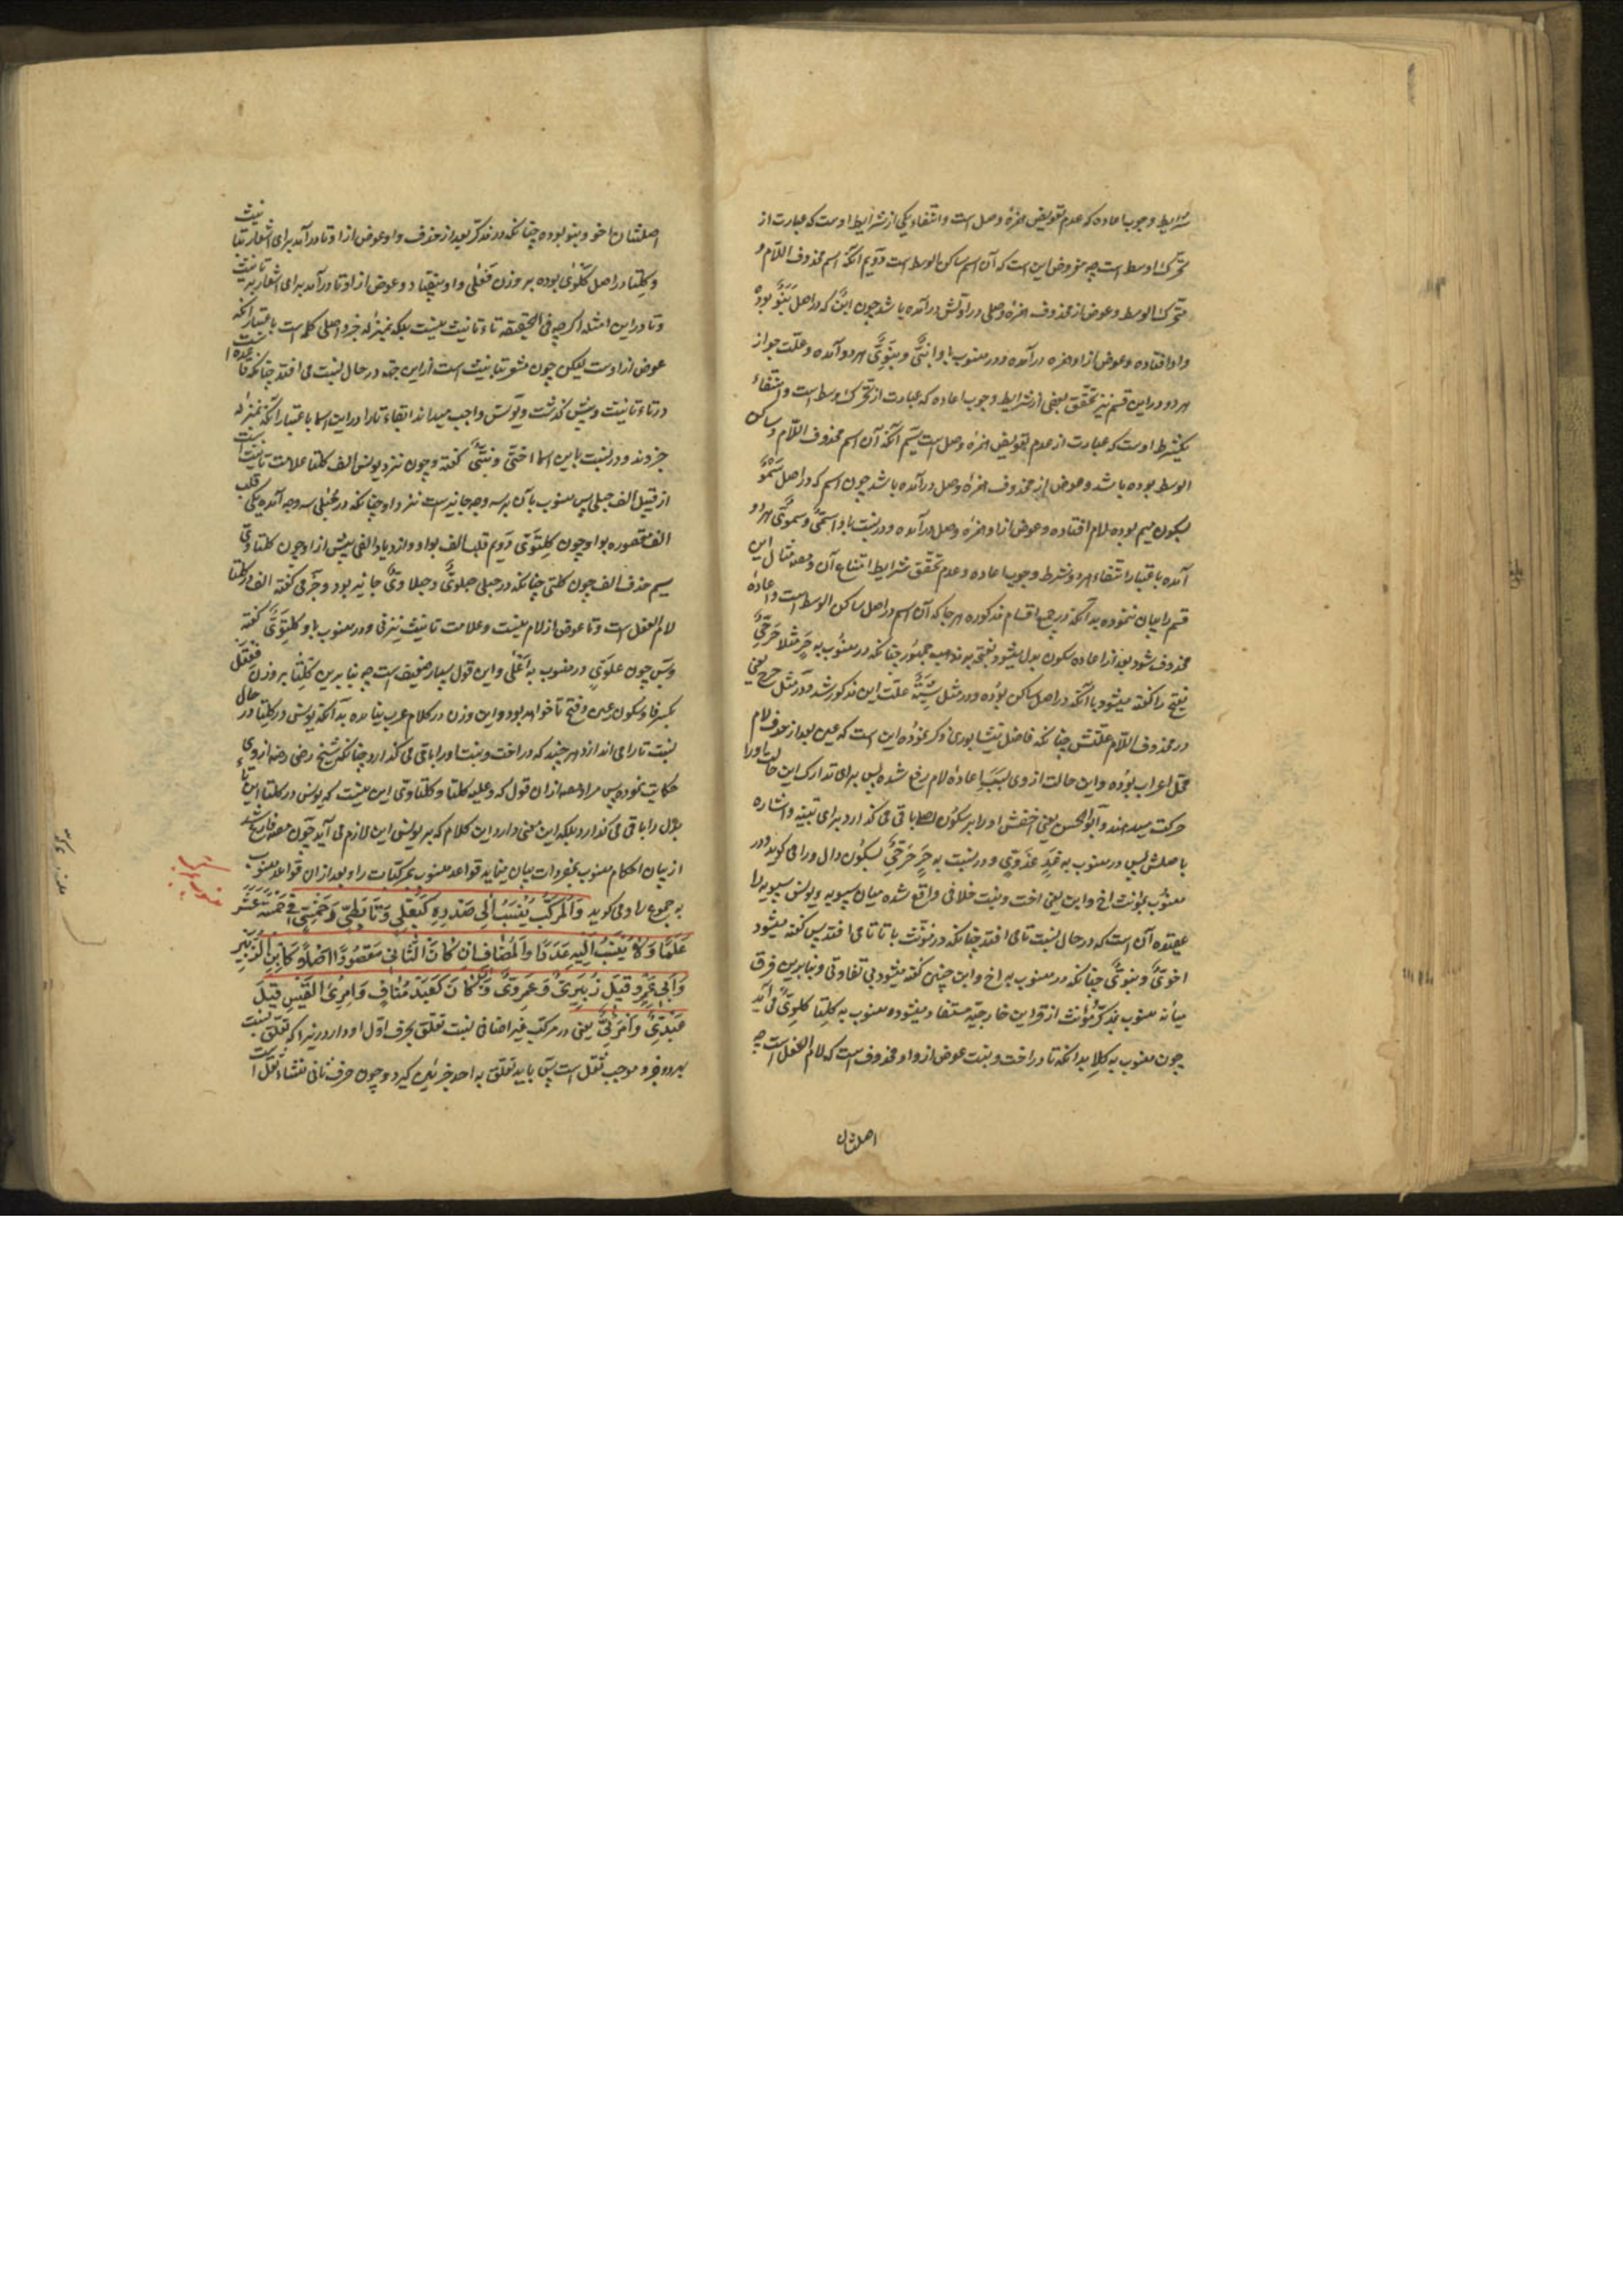 شرایط وجوب اعاده که عدم تعویض همزهٔ وصل است و انتفاء یکی از شرایط اوست که عبارت از
تحرک اوسط است چه مفروض این است که آن اسم ساکن الوسط است دویم آنکه اسم محذوف اللام و
متحرک الوسط و عوض از محذوف همزهٔ وصلی در اولش درآمده باشد چون ابن که در اصل بنو بوده
واو افتاده و عوض از او همزه درآمده و در منسوب باو ابنی و بنوی هر دو آمده و علت جواز
هر دو در این قسم نیز تحقق بعضی از شرایط وجوب اعاده که عبارت از تحرک وسط است و انتفاء
یکشرط اوست که عبارت از عدم تعویض همزهٔ وصل است سیم آنکه آن اسم محذوف اللام و ساکن
الوسط بوده باشد و عوض از محذوف همزهٔ وصل درآمده باشد چون اسم که در اصل سمو
بسکون میم بوده لام افتاده و عوض از او همزهٔ وصل درآمده و در نسبت باو اسمی و سموی هر دو
آمده باعتبار انتفاء هر دو شرط وجوب اعاده و عدم تحقق شرایط امتناع آن و مصنف مثال این
قسم را بیان ننموده بدانکه در جمیع اقسام مذکوره هر جا که آن اسم در اصل ساکن الوسط است و اعادهٔ
محذوف شود بعد از اعاده سکون بدل میشود بفتحه بمذهب جمهور چنانکه در منسوب به حر مثلا حرحی
بفتح را گفته میشود با آنکه در اصل ساکن بوده و در مثل شیة علت این مذکور شد و در مثل حر یعنی
در محذوف اللام علتش چنانکه فاضل نیشابوری ذکر نموده این است که عین بعد از حذف لام
محل اعراب بوده و این حالت از وی بسبب اعادهٔ لام رفع شده پس برای تدارک این حالت او را
حرکت میدهند و ابو الحسن یعنی اخفش او را بر سکون اصلا باقی می گذارد برای تنبیه و اشاره
باصلش پس در منسوب به غد غدوی و در نسبت به حر حرحی بسکون دال و را می گوید و در
منسوب بمونث اخ و ابن یعنی اخت و بنت خلافی واقع شده میان سیبویه و یونس سیبویه را
عقیده آن است که در حال نسبت تا می افتد چنانکه در مونث با تا تا می افتد پس گفته میشود
اخوی و بنوی چنانکه در منسوب به اخ و ابن چنین گفته میشود بی تفاوتی و بنابرین فرق
میانه منسوب بمذکر و مونث از قراین خارجیه مستفاد میشود و منسوب به کلتا کلوی می آید
چون منسوب به کلا بدانکه تا در اخت و بنت عوض از واو محذوف است که لام الفعل است چه
اصلشان
اصلشان اخو و بنو بوده چنانکه در مذکر بعد از حذف واو عوض از او تا درآمد برای اشعار بتانیث
و کلتا در اصل کلوی بوده بر وزن فعلی واو بیفتاد و عوض از او تا درآمد برای اشعار بتانیث
و تا در این امثله اگر چه فی الحقیقه تاء تانیث نیست بلکه بمنزله جزو اصلی کلمه است باعتبار آنکه
عوض از اوست لیکن چون مشعر بتانیث است از این جهة در حال نسبت می افتد چنانکه قاعده است
در تاء تانیث و پیش گذشت و یونس واجب میداند ابقاء تا را در این اسما باعتبار آنکه بمنزله
جزوند و در نسبت باین اسما اختی و بنتی گفته و چون نزد یونس الف کلتا علامت تانیث است
از قبیل الف حبلی پس منسوب بآن بر سه وجه جایز است نزد او چنانکه در حبلی سه وجه آمده یکی قلب
الف مقصوره بواو چون کلتوی دویم قلب الف بواو و ازدیاد الفی پیش از او چون کلتاوی
سیم حذف الف چون کلتی چنانکه در حبلی حبلوی و حبلاوی جایز بود و جرمی گفته الف در کلتا
لام الفعل است و تا عوض از لام نیست و علامت تانیث نیز نی و در منسوب باو کلتوی گفته
و بس چون علوی در منسوب به اعلی و این قول بسیار ضعیف است چه بنابرین کلتا بر وزن فعتل
بکسر فا و سکون عین و فتح تا خواهد بود و این وزن در کلام عرب نیامده بدانکه یونس در کلتا در حال
نسبت تا را می اندازد هر چند که در اخت و بنت او را باقی می گذارد چنانکه شیخ رضی رضه از وی
حکایت نموده پس مراد مصنف از آن قول که و علیه کلتا و کلتاوی این نیست که یونس در کلتا این تاء
بدل را باقی می گذارد بلکه این معنی دارد این کلام که بر یونس این لازم می آید چون مصنف فارغ شد
از بیان احکام منسوب بمفردات بیان مینماید قواعد منسوب بمرکبات را و بعد از آن قواعد منسوب
به جموع را و می گوید والمرکب ینسب الی صدره کبعلی وتابطی وخمسی فی خمسة عشر
علما ولا ینسب الیه عددا والمضاف ان کان الثانی مقصودا اصلا کابن الزبیر
وابی عمرو قیل زبیری وعمروی وان کان کعبد مناف وامرئ القیس قیل
عبدی وامرئی یعنی در مرکب غیر اضافی نسبت تعلق بحرف اول او دارد زیرا که تعلق نسبت
بهر دو جزو موجب ثقل است پس باید تعلق به احد جزئین گیرد و چون حرف ثانی منشاء ثقل است